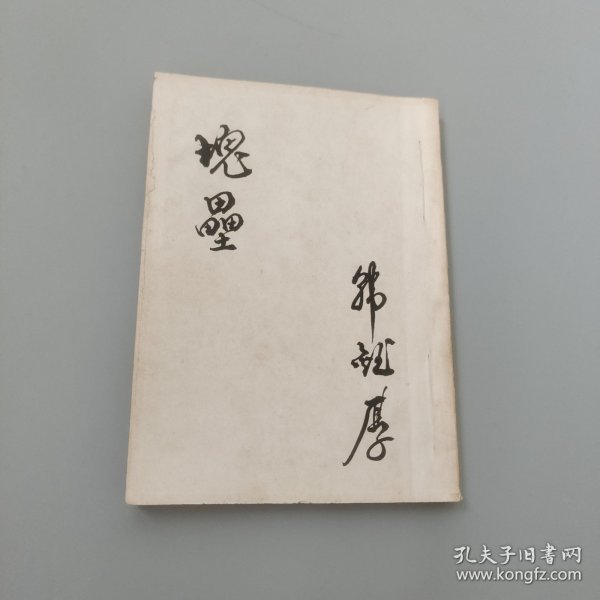 塊壘
韩
厚
孔夫子旧书网
www.kongfz.com